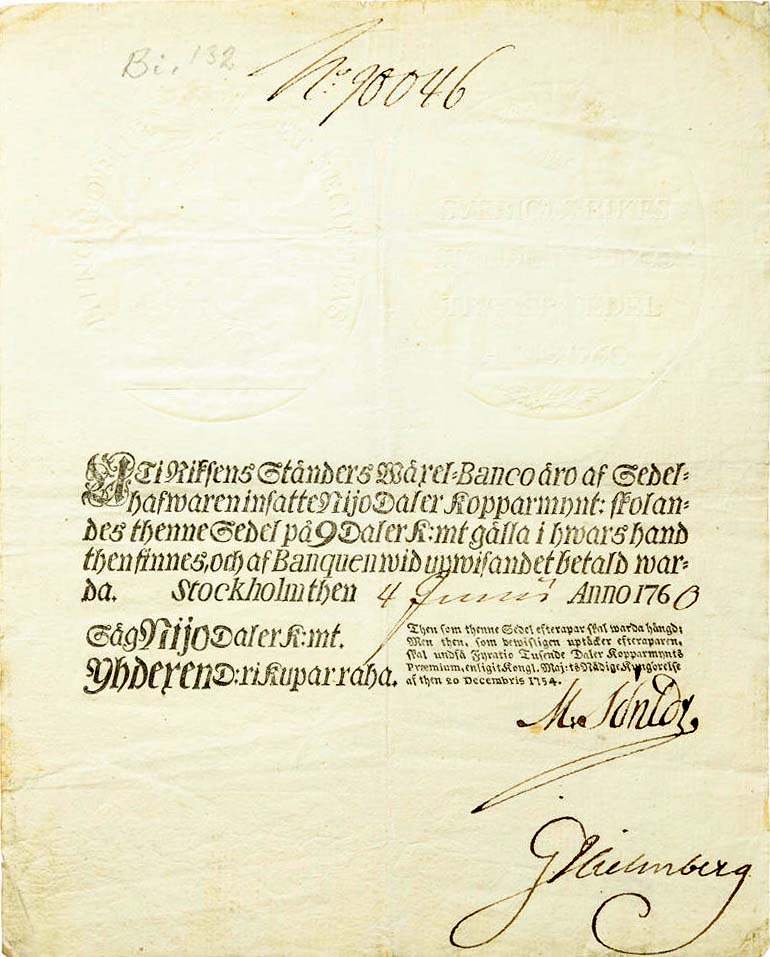 Bi. 132
No. 90046
SVERIGES RIKES
SEDEL
1760
UTi Riksens Ständers Wäxel-Banco äro af Sedel-
hafwaren insatte Nijo Daler Kopparmynt: skolan-
des thenne Sedel på 9 Daler K:mt gälla i hwars hand
then finnes, och af Banquen wid upwisandet betald war-
da. Stockholm then 4 Junii Anno 1760
Säg Nijo Daler K:mt.
Yhdexen D:ri Kupar raha.
Then som thenne Sedel efterapar skal warda hängd;
Men then, som bewisligen uptäcker efteraparen,
skal undfå Fyratio Tusende Daler Kopparmynts
Præmium, enligit Kongl. Maj:ts Nådige Kungörelse
af then 20 Decembris 1754.